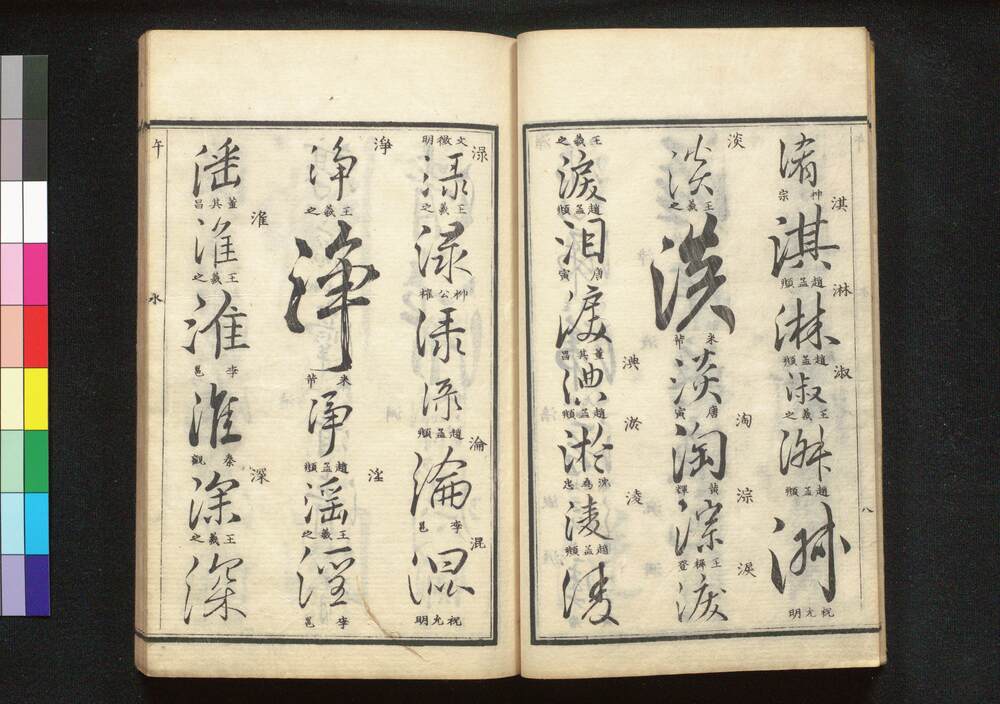 淆
淇
淇
趙孟頫
淋
淋
趙孟頫
淑
淑
王羲之
淑
趙孟頫
淑
祝允明
八
淡
淡
王羲之
淡
米芾
淡
唐寅
淘
淘
黃輝
淙
淙
王穉登
淚
淚
王羲之
淚
趙孟頫
泪
唐寅
淚
董其昌
淟
淟
趙孟頫
淤
淤
淩
淩
趙孟頫
淩
文徵明
淥
淥
王羲之
淥
柳公權
淥
淥
趙孟頫
淪
淪
李邕
混
混
祝允明
淨
淨
王羲之
淨
米芾
淨
趙孟頫
淫
淫
王羲之
淫
李邕
淫
董其昌
淮
淮
王羲之
淮
李邕
淮
秦觀
深
深
王羲之
深
午
水